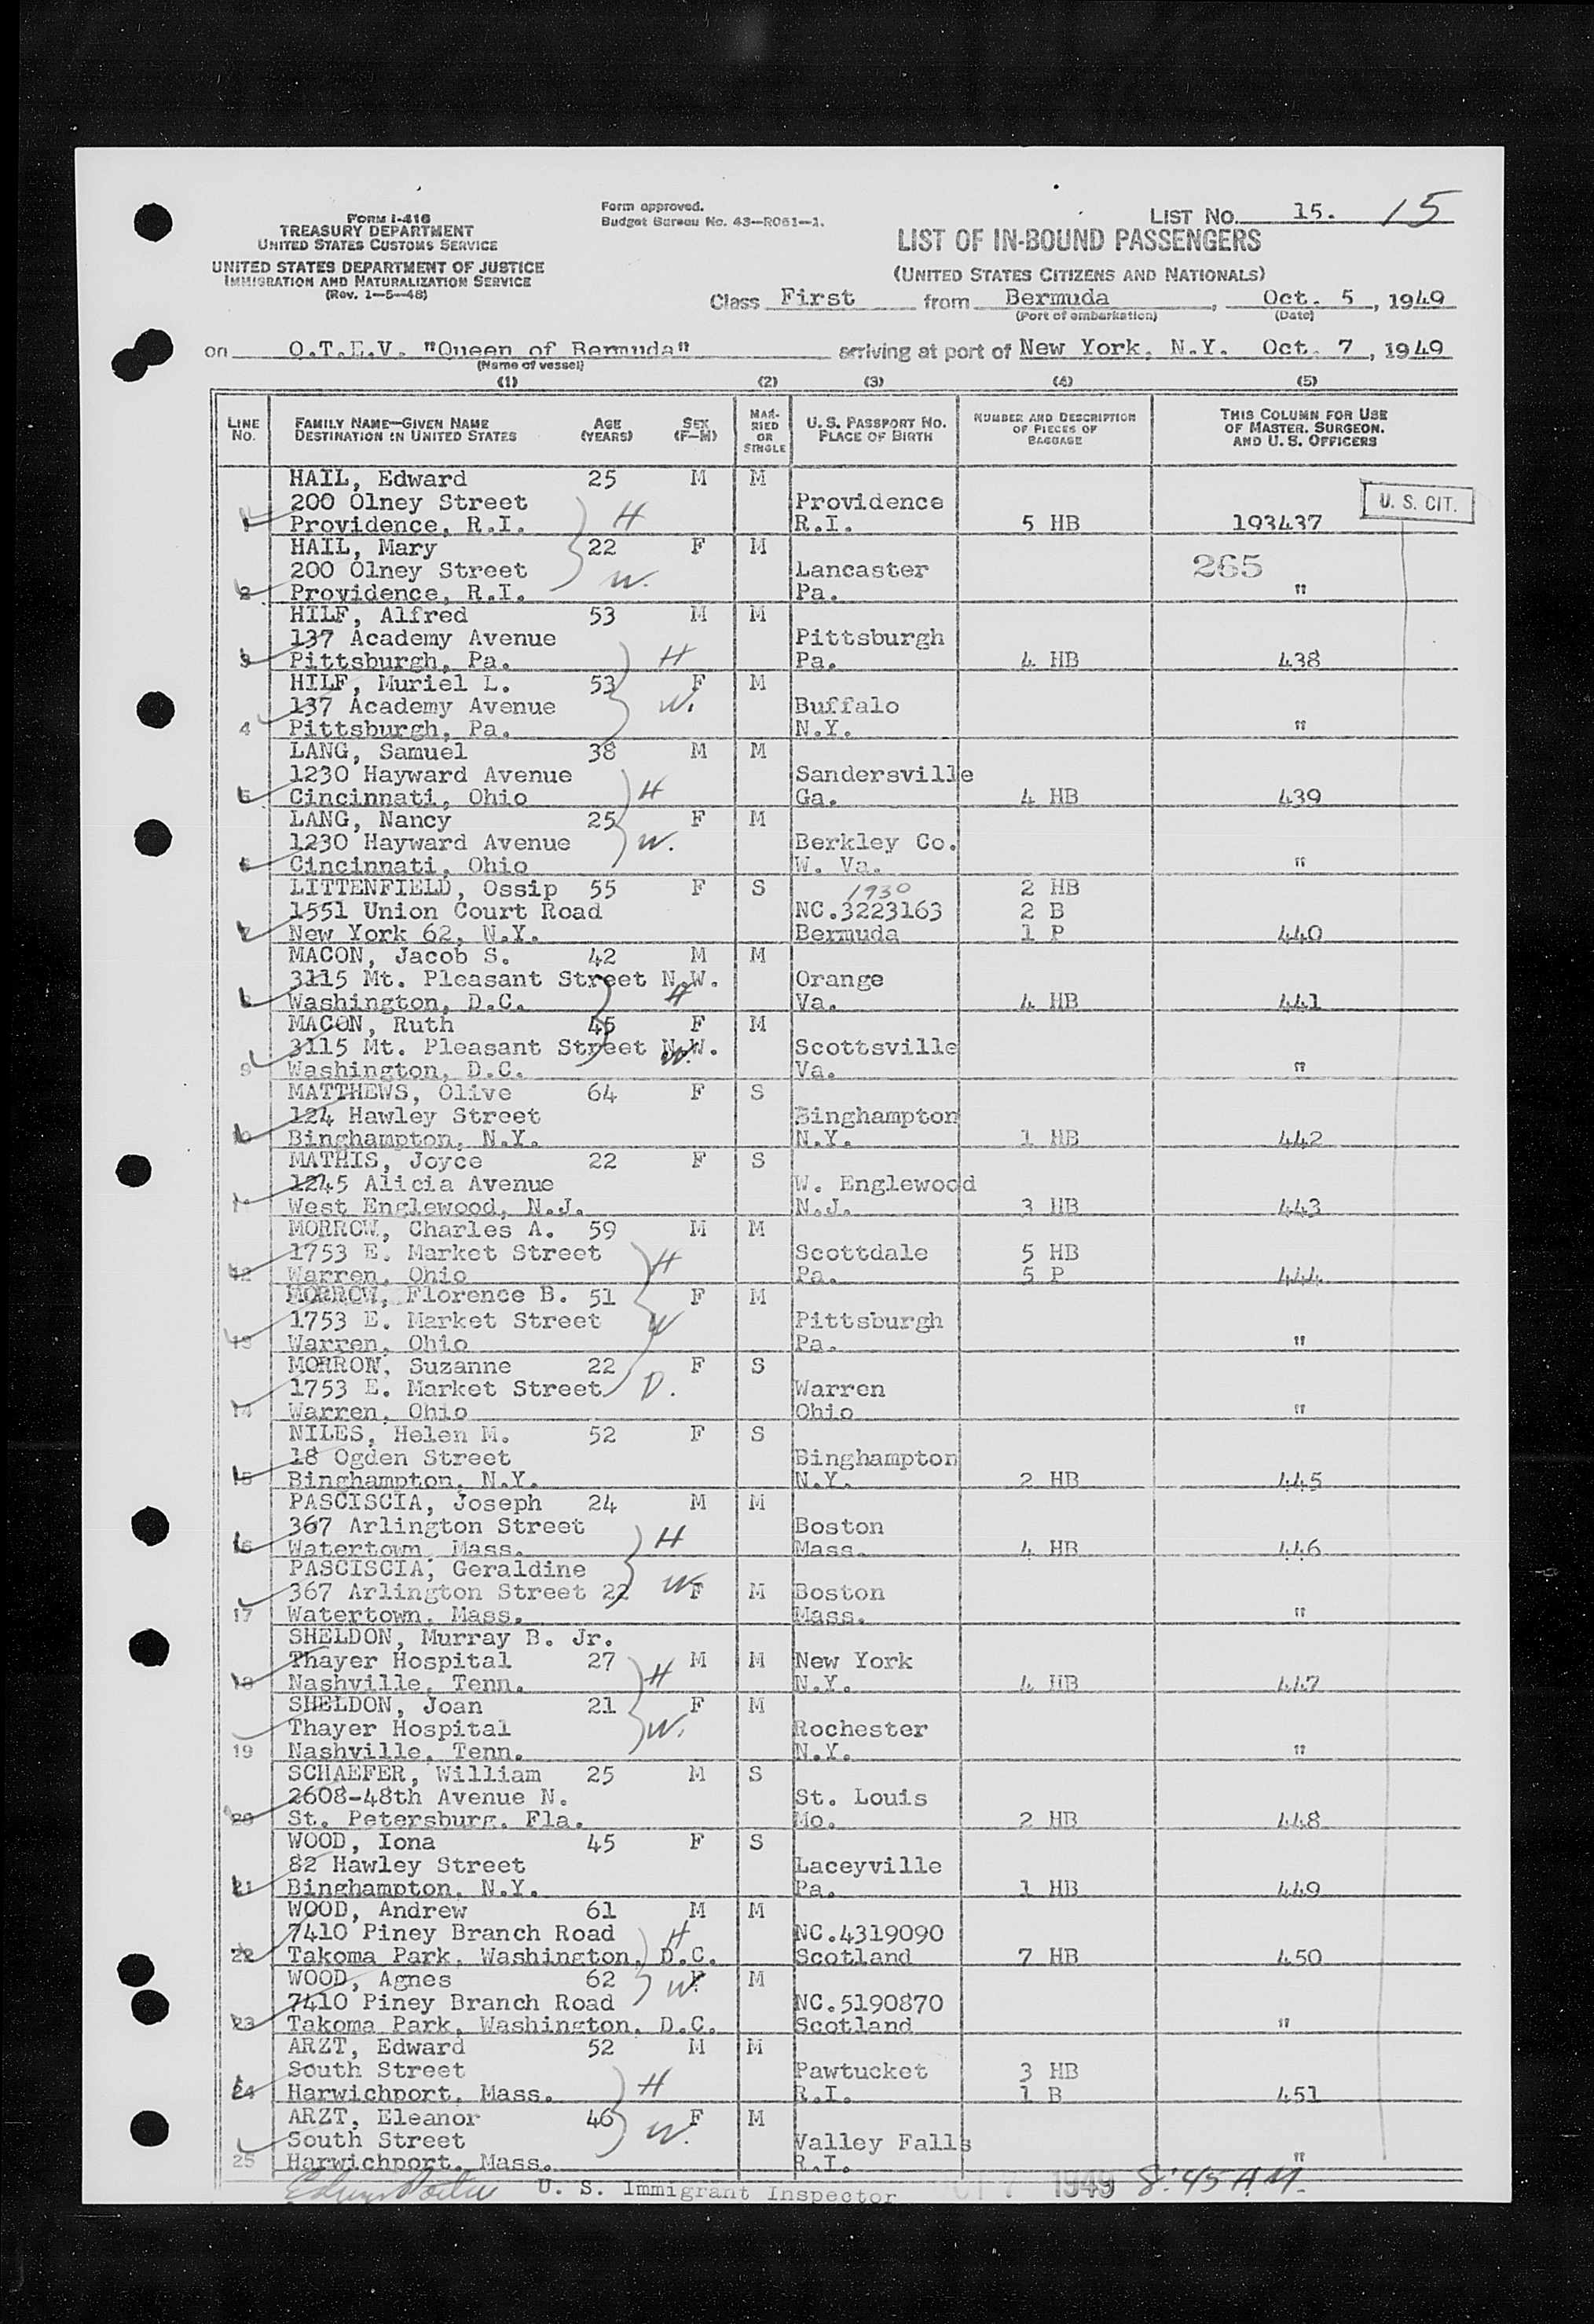 FORM I-416
TREASURY DEPARTMENT
UNITED STATES CUSTOMS SERVICE
UNITED STATES DEPARTMENT OF JUSTICE
IMMIGRATION AND NATURALIZATION SERVICE
(Rev. 1-5-48)
Form approved.
Budget Bureau No. 43-R061-1.
LIST NO. 15. 15
LIST OF IN-BOUND PASSENGERS
(UNITED STATES CITIZENS AND NATIONALS)
Class First from Bermuda, Oct. 5, 1949
(Port of embarkation) (Date)
on O.T.E.V. "Queen of Bermuda" arriving at port of New York, N.Y. Oct. 7, 1949
(Name of vessel)
(1) (2) (3) (4) (5)
LINE No. FAMILY NAME—GIVEN NAME DESTINATION IN UNITED STATES AGE (YEARS) SEX (F-M) MARRIED OR SINGLE U. S. PASSPORT NO. PLACE OF BIRTH NUMBER AND DESCRIPTION OF PIECES OF BAGGAGE THIS COLUMN FOR USE OF MASTER, SURGEON, AND U. S. OFFICERS
HAIL, Edward 25 M M
200 Olney Street H Providence U. S. CIT.
1 Providence, R.I. R.I. 5 HB 193437
HAIL, Mary 22 F M
200 Olney Street W. Lancaster 265
2 Providence, R.I. Pa. "
HILF, Alfred 53 M M
137 Academy Avenue Pittsburgh
3 Pittsburgh, Pa. H Pa. 4 HB 438
HILF, Muriel L. 53 F M
137 Academy Avenue W. Buffalo
4 Pittsburgh, Pa. N.Y. "
LANG, Samuel 38 M M
1230 Hayward Avenue Sandersville
5 Cincinnati, Ohio H Ga. 4 HB 439
LANG, Nancy 25 F M
1230 Hayward Avenue W. Berkley Co.
6 Cincinnati, Ohio W. Va. "
LITTENFIELD, Ossip 55 F S 1930 2 HB
1551 Union Court Road NC.3223163 2 B
7 New York 62, N.Y. Bermuda 1 P 440
MACON, Jacob S. 42 M M
3115 Mt. Pleasant Street N.W. Orange
8 Washington, D.C. H Va. 4 HB 441
MACON, Ruth 45 F M
3115 Mt. Pleasant Street N.W. W. Scottsville
9 Washington, D.C. Va. "
MATTHEWS, Olive 64 F S
124 Hawley Street Binghampton
10 Binghampton, N.Y. N.Y. 1 HB 442
MATHIS, Joyce 22 F S
1245 Alicia Avenue W. Englewood
11 West Englewood, N.J. N.J. 3 HB 443
MORROW, Charles A. 59 M M
1753 E. Market Street H Scottdale 5 HB
12 Warren, Ohio Pa. 5 P 444
MORROW, Florence B. 51 F M
1753 E. Market Street W Pittsburgh
13 Warren, Ohio Pa. "
MORROW, Suzanne 22 F S
1753 E. Market Street D. Warren
14 Warren, Ohio Ohio "
NILES, Helen M. 52 F S
18 Ogden Street Binghampton
15 Binghampton, N.Y. N.Y. 2 HB 445
PASCISCIA, Joseph 24 M M
367 Arlington Street H Boston
16 Watertown, Mass. Mass. 4 HB 446
PASCISCIA, Geraldine
367 Arlington Street 22 W F M Boston
17 Watertown, Mass. Mass. "
SHELDON, Murray B. Jr.
Thayer Hospital 27 M M New York
18 Nashville, Tenn. H N.Y. 4 HB 447
SHELDON, Joan 21 F M
Thayer Hospital W. Rochester
19 Nashville, Tenn. N.Y. "
SCHAEFER, William 25 M S
2608-48th Avenue N. St. Louis
20 St. Petersburg, Fla. Mo. 2 HB 448
WOOD, Iona 45 F S
82 Hawley Street Laceyville
21 Binghampton, N.Y. Pa. 1 HB 449
WOOD, Andrew 61 M M
7410 Piney Branch Road H NC.4319090
22 Takoma Park, Washington, D.C. Scotland 7 HB 450
WOOD, Agnes 62 W F M
7410 Piney Branch Road NC.5190870
23 Takoma Park, Washington, D.C. Scotland "
ARZT, Edward 52 M M
South Street Pawtucket 3 HB
24 Harwichport, Mass. H R.I. 1 B 451
ARZT, Eleanor 46 F M
South Street W. Valley Falls
25 Harwichport, Mass. R.I. "
U. S. Immigrant Inspector OCT 7 1949 8:45 A.M.